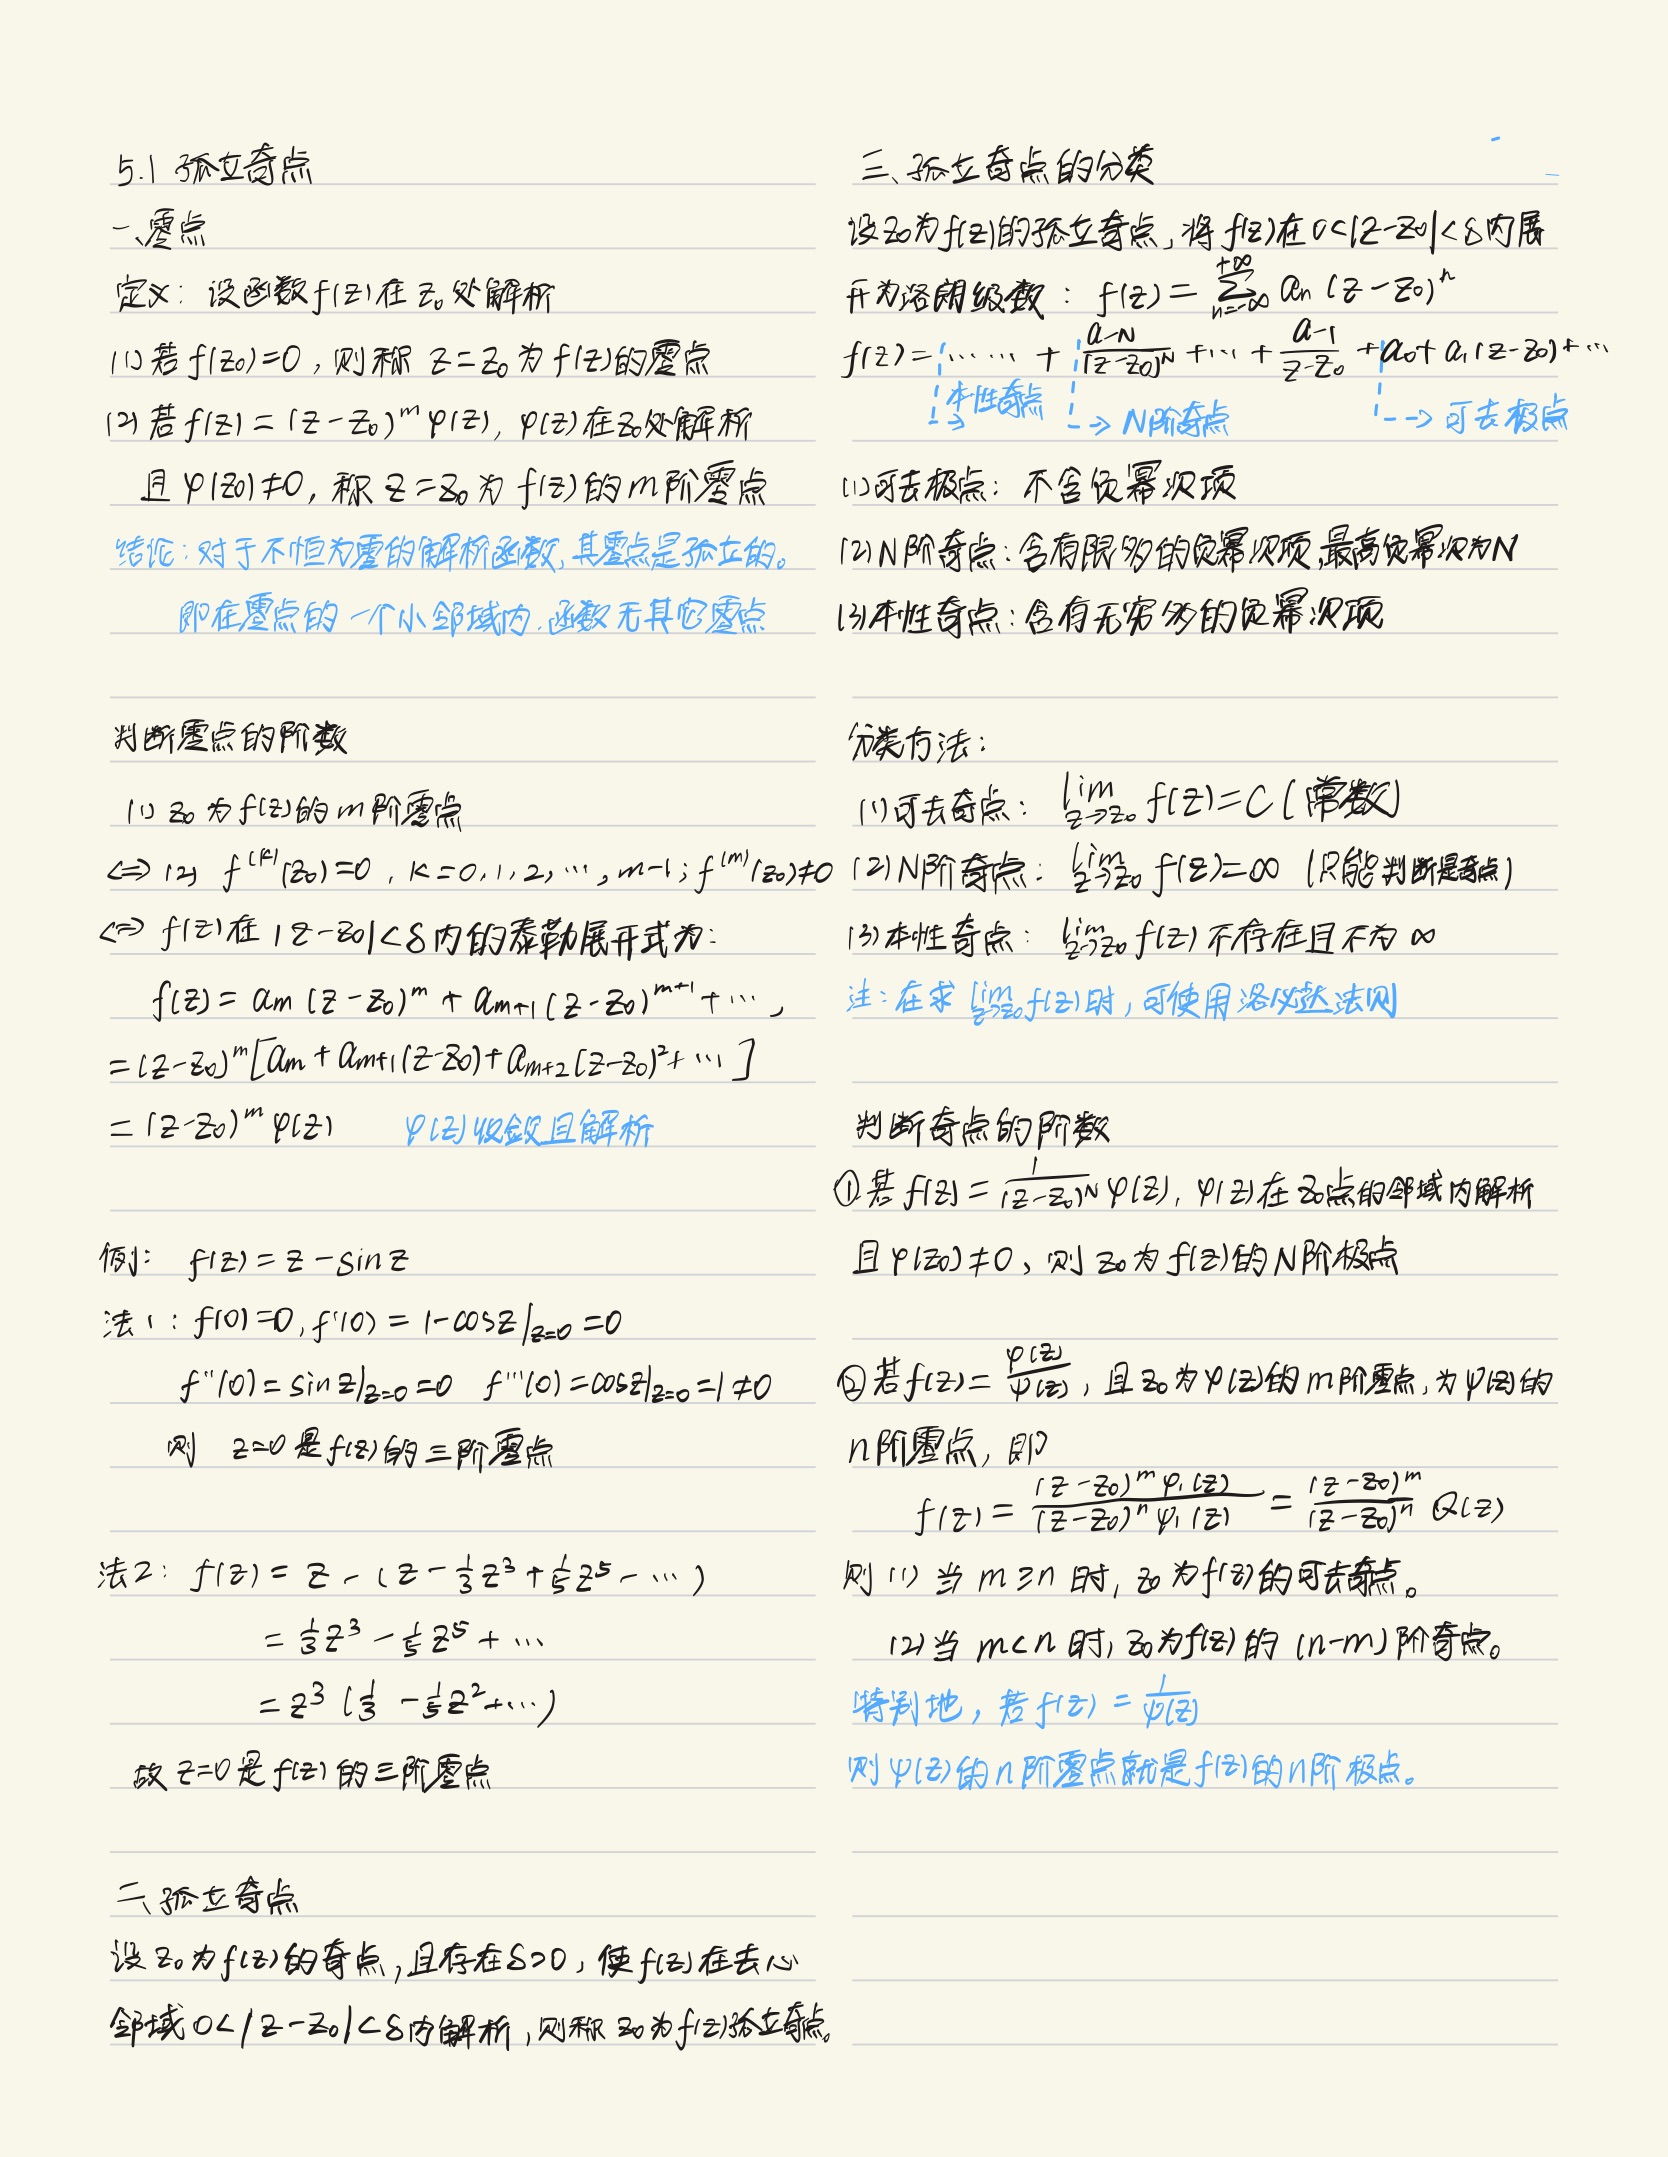 5.1 孤立奇点
一、零点
定义：设函数 f(z) 在 z₀ 处解析
(1) 若 f(z₀)=0，则称 z=z₀ 为 f(z) 的零点
(2) 若 f(z) = (z-z₀)^m φ(z)，φ(z) 在 z₀ 处解析
且 φ(z₀)≠0，称 z=z₀ 为 f(z) 的 m 阶零点
结论：对于不恒为零的解析函数，其零点是孤立的。
即在零点的一个小邻域内，函数无其它零点
判断零点的阶数
(1) z₀ 为 f(z) 的 m 阶零点
<=> (2) f^(k)(z₀)=0，k=0,1,2,…,m-1；f^(m)(z₀)≠0
<=> f(z) 在 |z-z₀|<δ 内的泰勒展开式为：
f(z) = a_m (z-z₀)^m + a_{m+1} (z-z₀)^{m+1} + …，
= (z-z₀)^m [a_m + a_{m+1}(z-z₀) + a_{m+2}(z-z₀)² + …]
= (z-z₀)^m φ(z)　φ(z) 收敛且解析
例：f(z) = z - sin z
法1：f(0)=0, f'(0) = 1-cosz|_{z=0} = 0
f''(0) = sin z|_{z=0} = 0　f'''(0) = cosz|_{z=0} = 1 ≠ 0
则 z=0 是 f(z) 的三阶零点
法2：f(z) = z - (z - 1/3 z³ + 1/5 z⁵ - …)
= 1/3 z³ - 1/5 z⁵ + …
= z³ (1/3 - 1/5 z² + …)
故 z=0 是 f(z) 的三阶零点
二、孤立奇点
设 z₀ 为 f(z) 的奇点，且存在 δ>0，使 f(z) 在去心
邻域 0<|z-z₀|<δ 内解析，则称 z₀ 为 f(z) 孤立奇点。
三、孤立奇点的分类
设 z₀ 为 f(z) 的孤立奇点，将 f(z) 在 0<|z-z₀|<δ 内展
开为洛朗级数：f(z) = Σ_{n=-∞}^{+∞} a_n (z-z₀)^n
f(z) = …… + a_{-N}/(z-z₀)^N + … + a_{-1}/(z-z₀) + a₀ + a₁(z-z₀) + …
本性奇点　N阶奇点　可去极点
(1) 可去极点：不含负幂次项
(2) N阶奇点：含有限多的负幂次项，最高负幂次为N
(3) 本性奇点：含有无穷多的负幂次项
分类方法：
(1) 可去奇点：lim_{z→z₀} f(z) = C (常数)
(2) N阶奇点：lim_{z→z₀} f(z) = ∞ (只能判断是奇点)
(3) 本性奇点：lim_{z→z₀} f(z) 不存在且不为 ∞
注：在求 lim_{z→z₀} f(z) 时，可使用洛必达法则
判断奇点的阶数
① 若 f(z) = 1/(z-z₀)^N φ(z)，φ(z) 在 z₀ 点的邻域内解析
且 φ(z₀)≠0，则 z₀ 为 f(z) 的 N 阶极点
② 若 f(z) = φ(z)/ψ(z)，且 z₀ 为 φ(z) 的 m 阶零点，为 ψ(z) 的
n 阶零点，即
f(z) = (z-z₀)^m φ₁(z)/(z-z₀)^n ψ₁(z) = (z-z₀)^m/(z-z₀)^n Q(z)
则 (1) 当 m≥n 时，z₀ 为 f(z) 的可去奇点。
(2) 当 m<n 时，z₀ 为 f(z) 的 (n-m) 阶奇点。
特别地，若 f(z) = 1/ψ(z)
则 ψ(z) 的 n 阶零点就是 f(z) 的 n 阶极点。